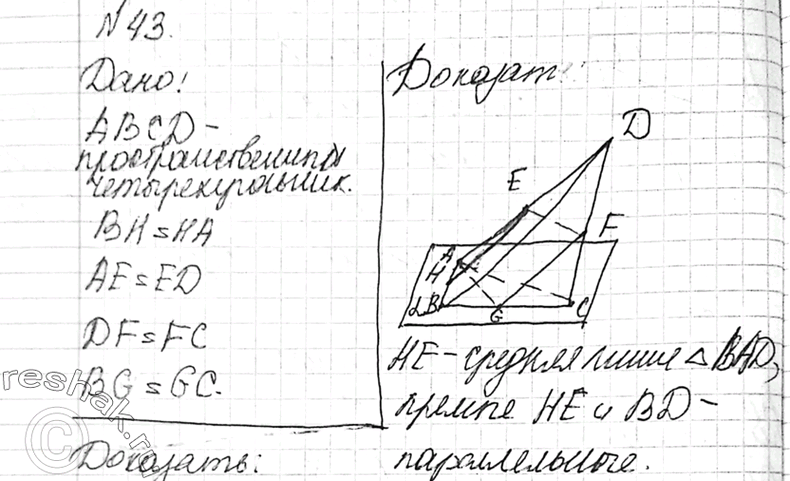 № 43.
Дано:
ABCD –
пространственный
четырехугольник.
BH = HA
AE = ED
DF = FC
BG = GC.
Доказать:
Доказат
D
E
F
A
H
α B
G
C
HE – средняя линия △ BAD,
прямые HE и BD –
параллельные.
reshak.ru
©